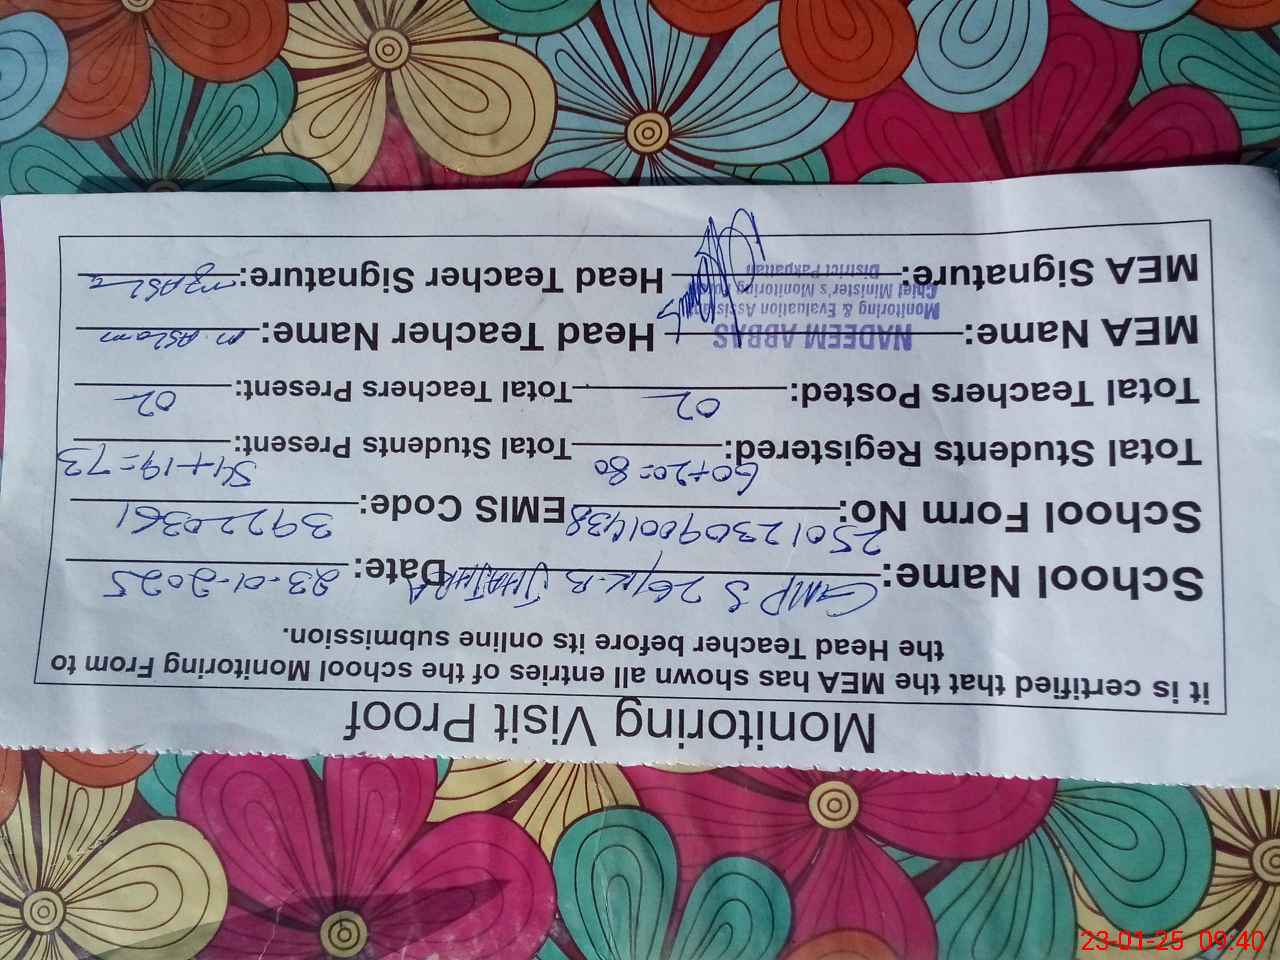 Monitoring Visit Proof
it is certified that the MEA has shown all entries of the school Monitoring From to
the Head Teacher before its online submission.
School Name: GMPS 26/K.B JHATHRA Date: 23-01-2025
School Form No: 25012309001438 EMIS Code: 39220361
Total Students Registered: 60+20=80 Total Students Present: 54+19=73
Total Teachers Posted: 02 Total Teachers Present: 02
MEA Name: Head Teacher Name: M. Aslam
NADEEM ABBAS
Monitoring & Evaluation Assistant
Chief Minister's Monitoring Force
District Pakpattan
MEA Signature: Head Teacher Signature:
23-01-25 09:40